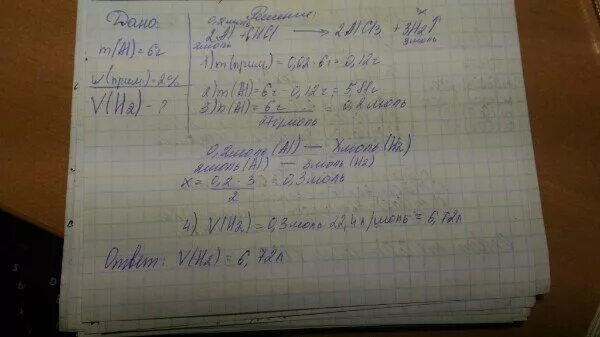 Дано:
m(Al)=6г
w(прим)=2%
V(H2) - ?
Решение:
0,2моль x
2Al + 6HCl → 2AlCl3 + 3H2↑
2моль 3моль
1) m(прим) = 0,02·6г = 0,12г
2) m(Al) = 6г - 0,12г = 5,88г
3) n(Al) = 6г = 0,2моль
27г/моль
0,2моль (Al) — Xмоль (H2)
2моль (Al) — 3моль (H2)
x = 0,2·3 = 0,3моль
2
4) V(H2) = 0,3моль·22,4л/моль = 6,72л
Ответ: V(H2) = 6,72л